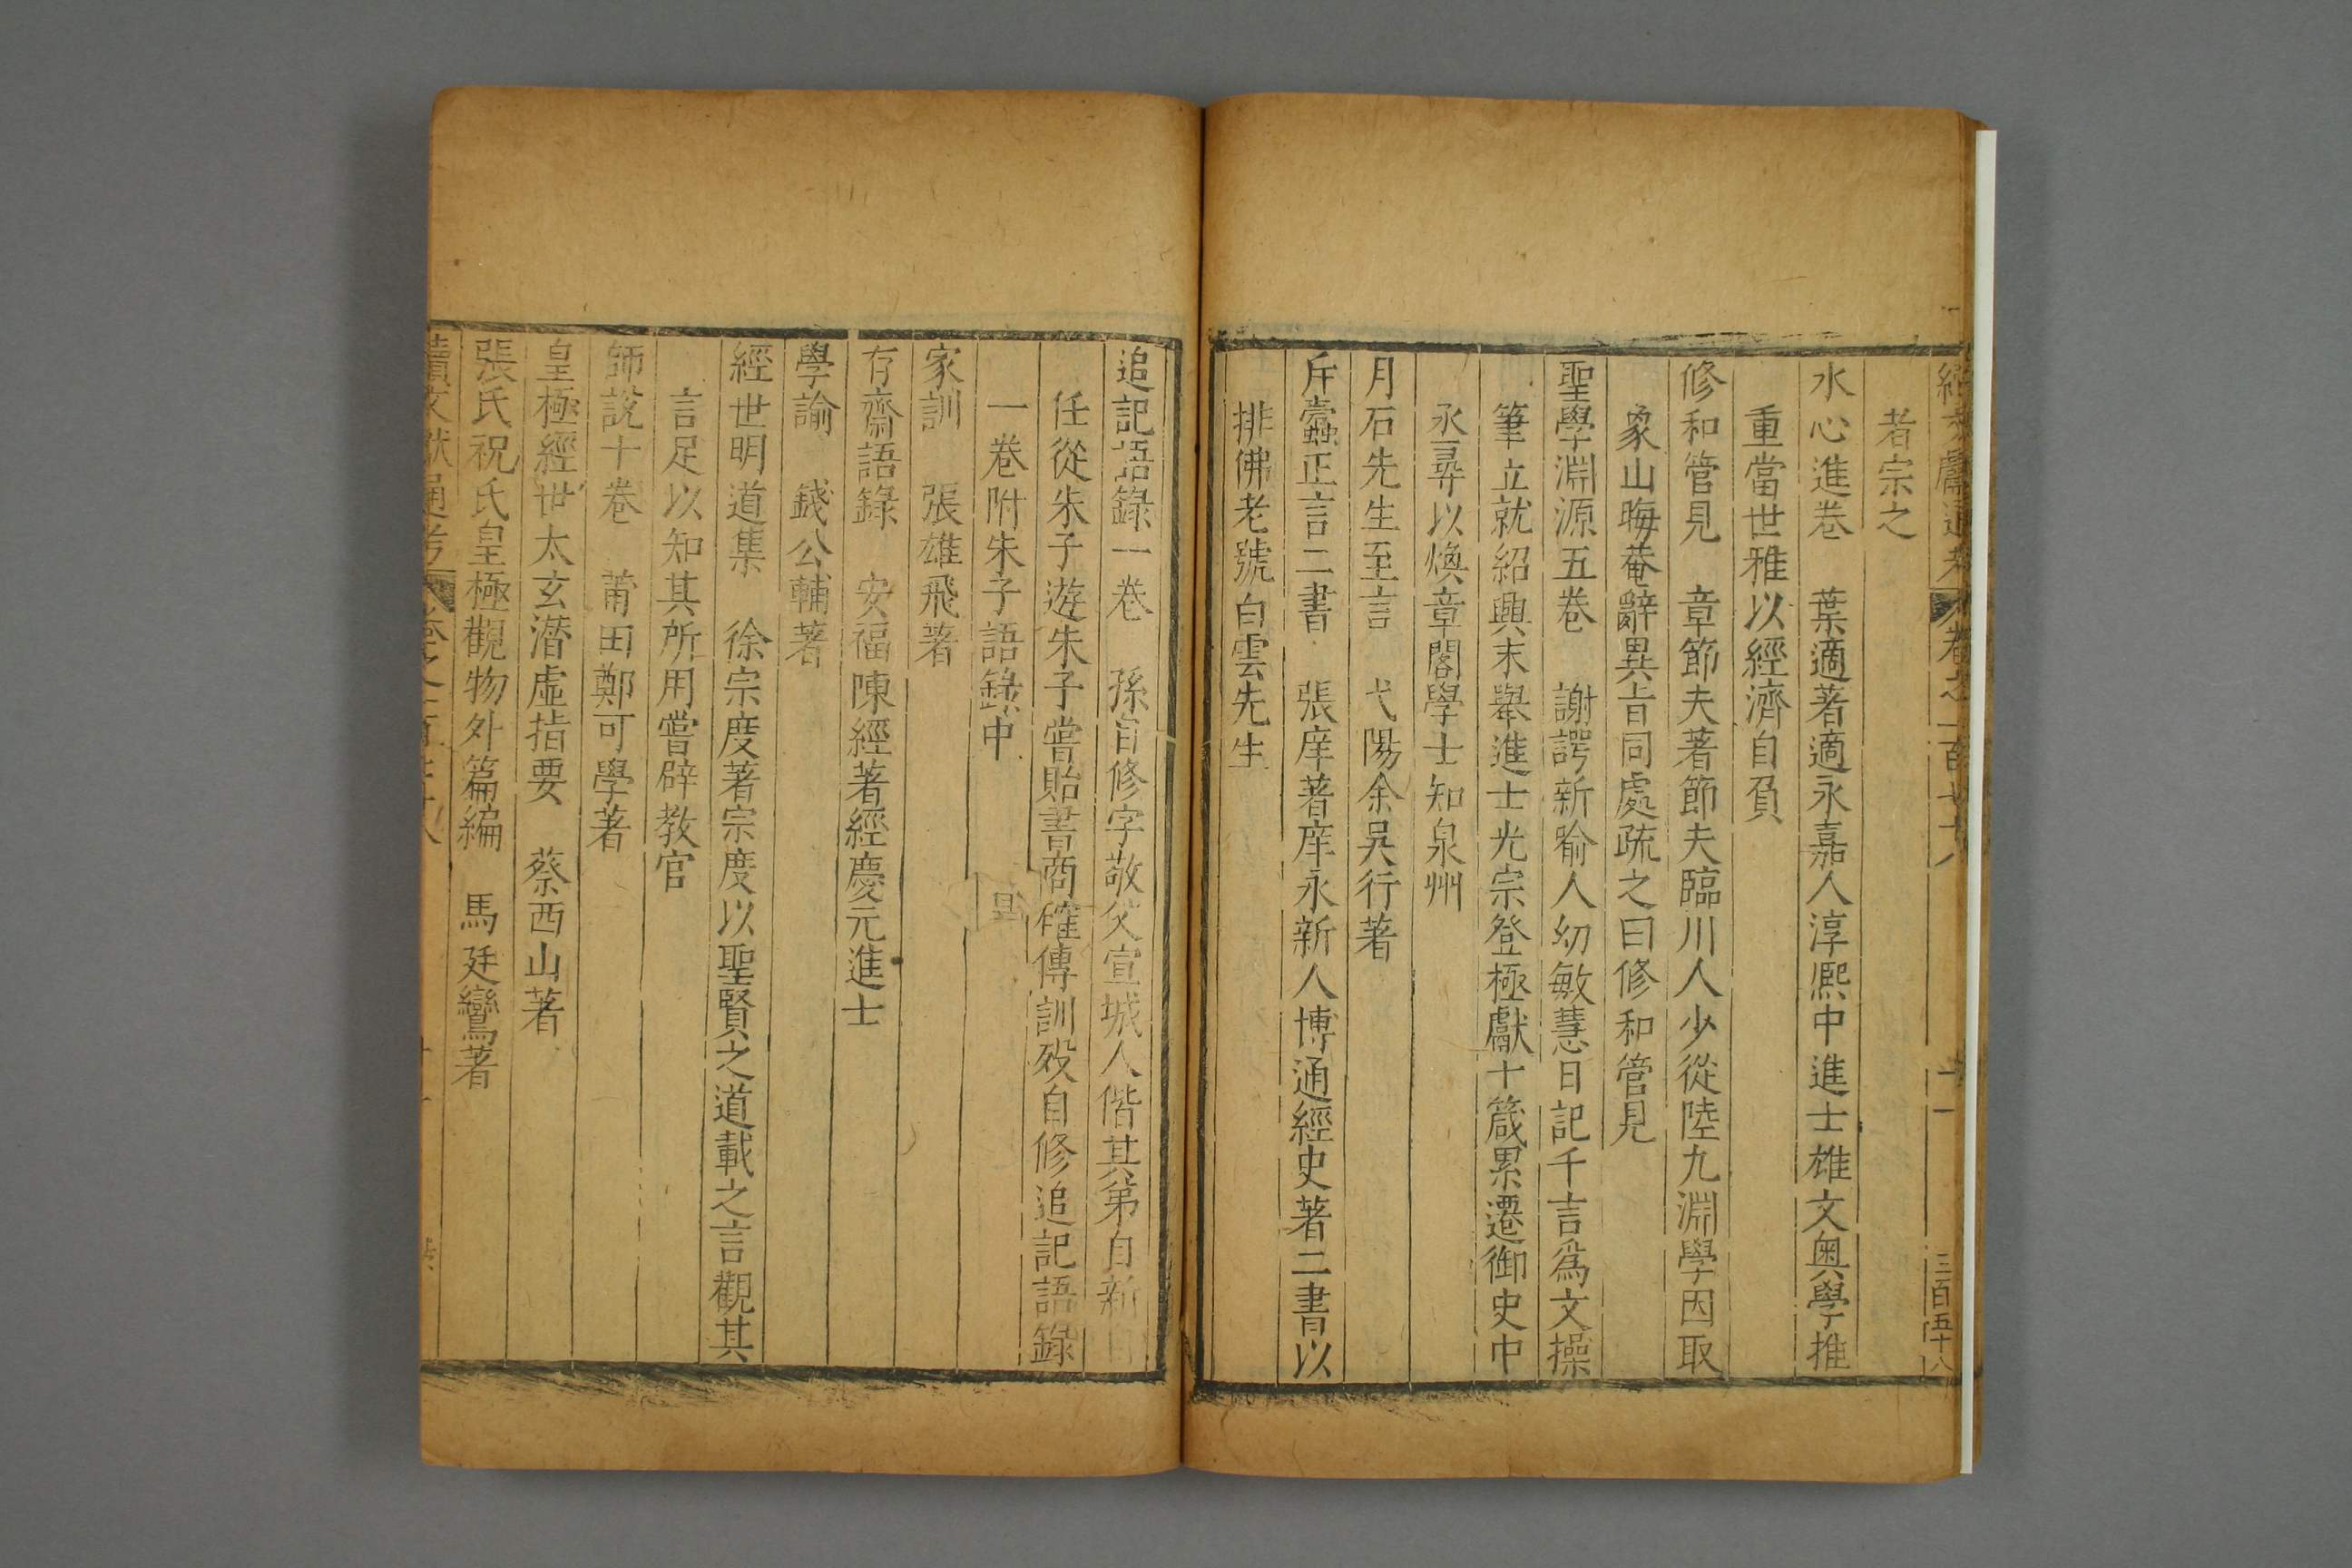 者宗之
水心進卷　葉適著適永嘉人淳熈中進士雄文奥學推
重當世雅以經濟自負
修和管見　章節夫著節夫臨川人少從陸九淵學因取
象山晦菴辭異旨同處疏之曰修和管見
聖學淵源五卷　謝諤新喻人幼敏慧日記千言爲文操
筆立就紹興末舉進士光宗登極獻十箴累遷御史中
丞尋以煥章閣學士知泉州
月石先生至言　弋陽余吳行著
斥蠹正言二書　張庠著庠永新人博通經史著二書以
排佛老號白雲先生
追記語錄一卷　孫自修字敬父宣城人偕其第自新自
任從朱子遊朱子嘗貽書商確傳訓歿自修追記語錄
一卷附朱子語錄中
家訓　張雄飛著
存齋語錄　安福陳經著經慶元進士
學論　錢公輔著
經世明道集　徐宗度著宗度以聖賢之道載之言觀其
言足以知其所用嘗辟教官
師說十卷　莆田鄭可學著
皇極經世太玄潛虛指要　蔡西山著
張氏祝氏皇極觀物外篇編　馬廷鸞著
續文獻通考　卷之一百七十八
三百五十八